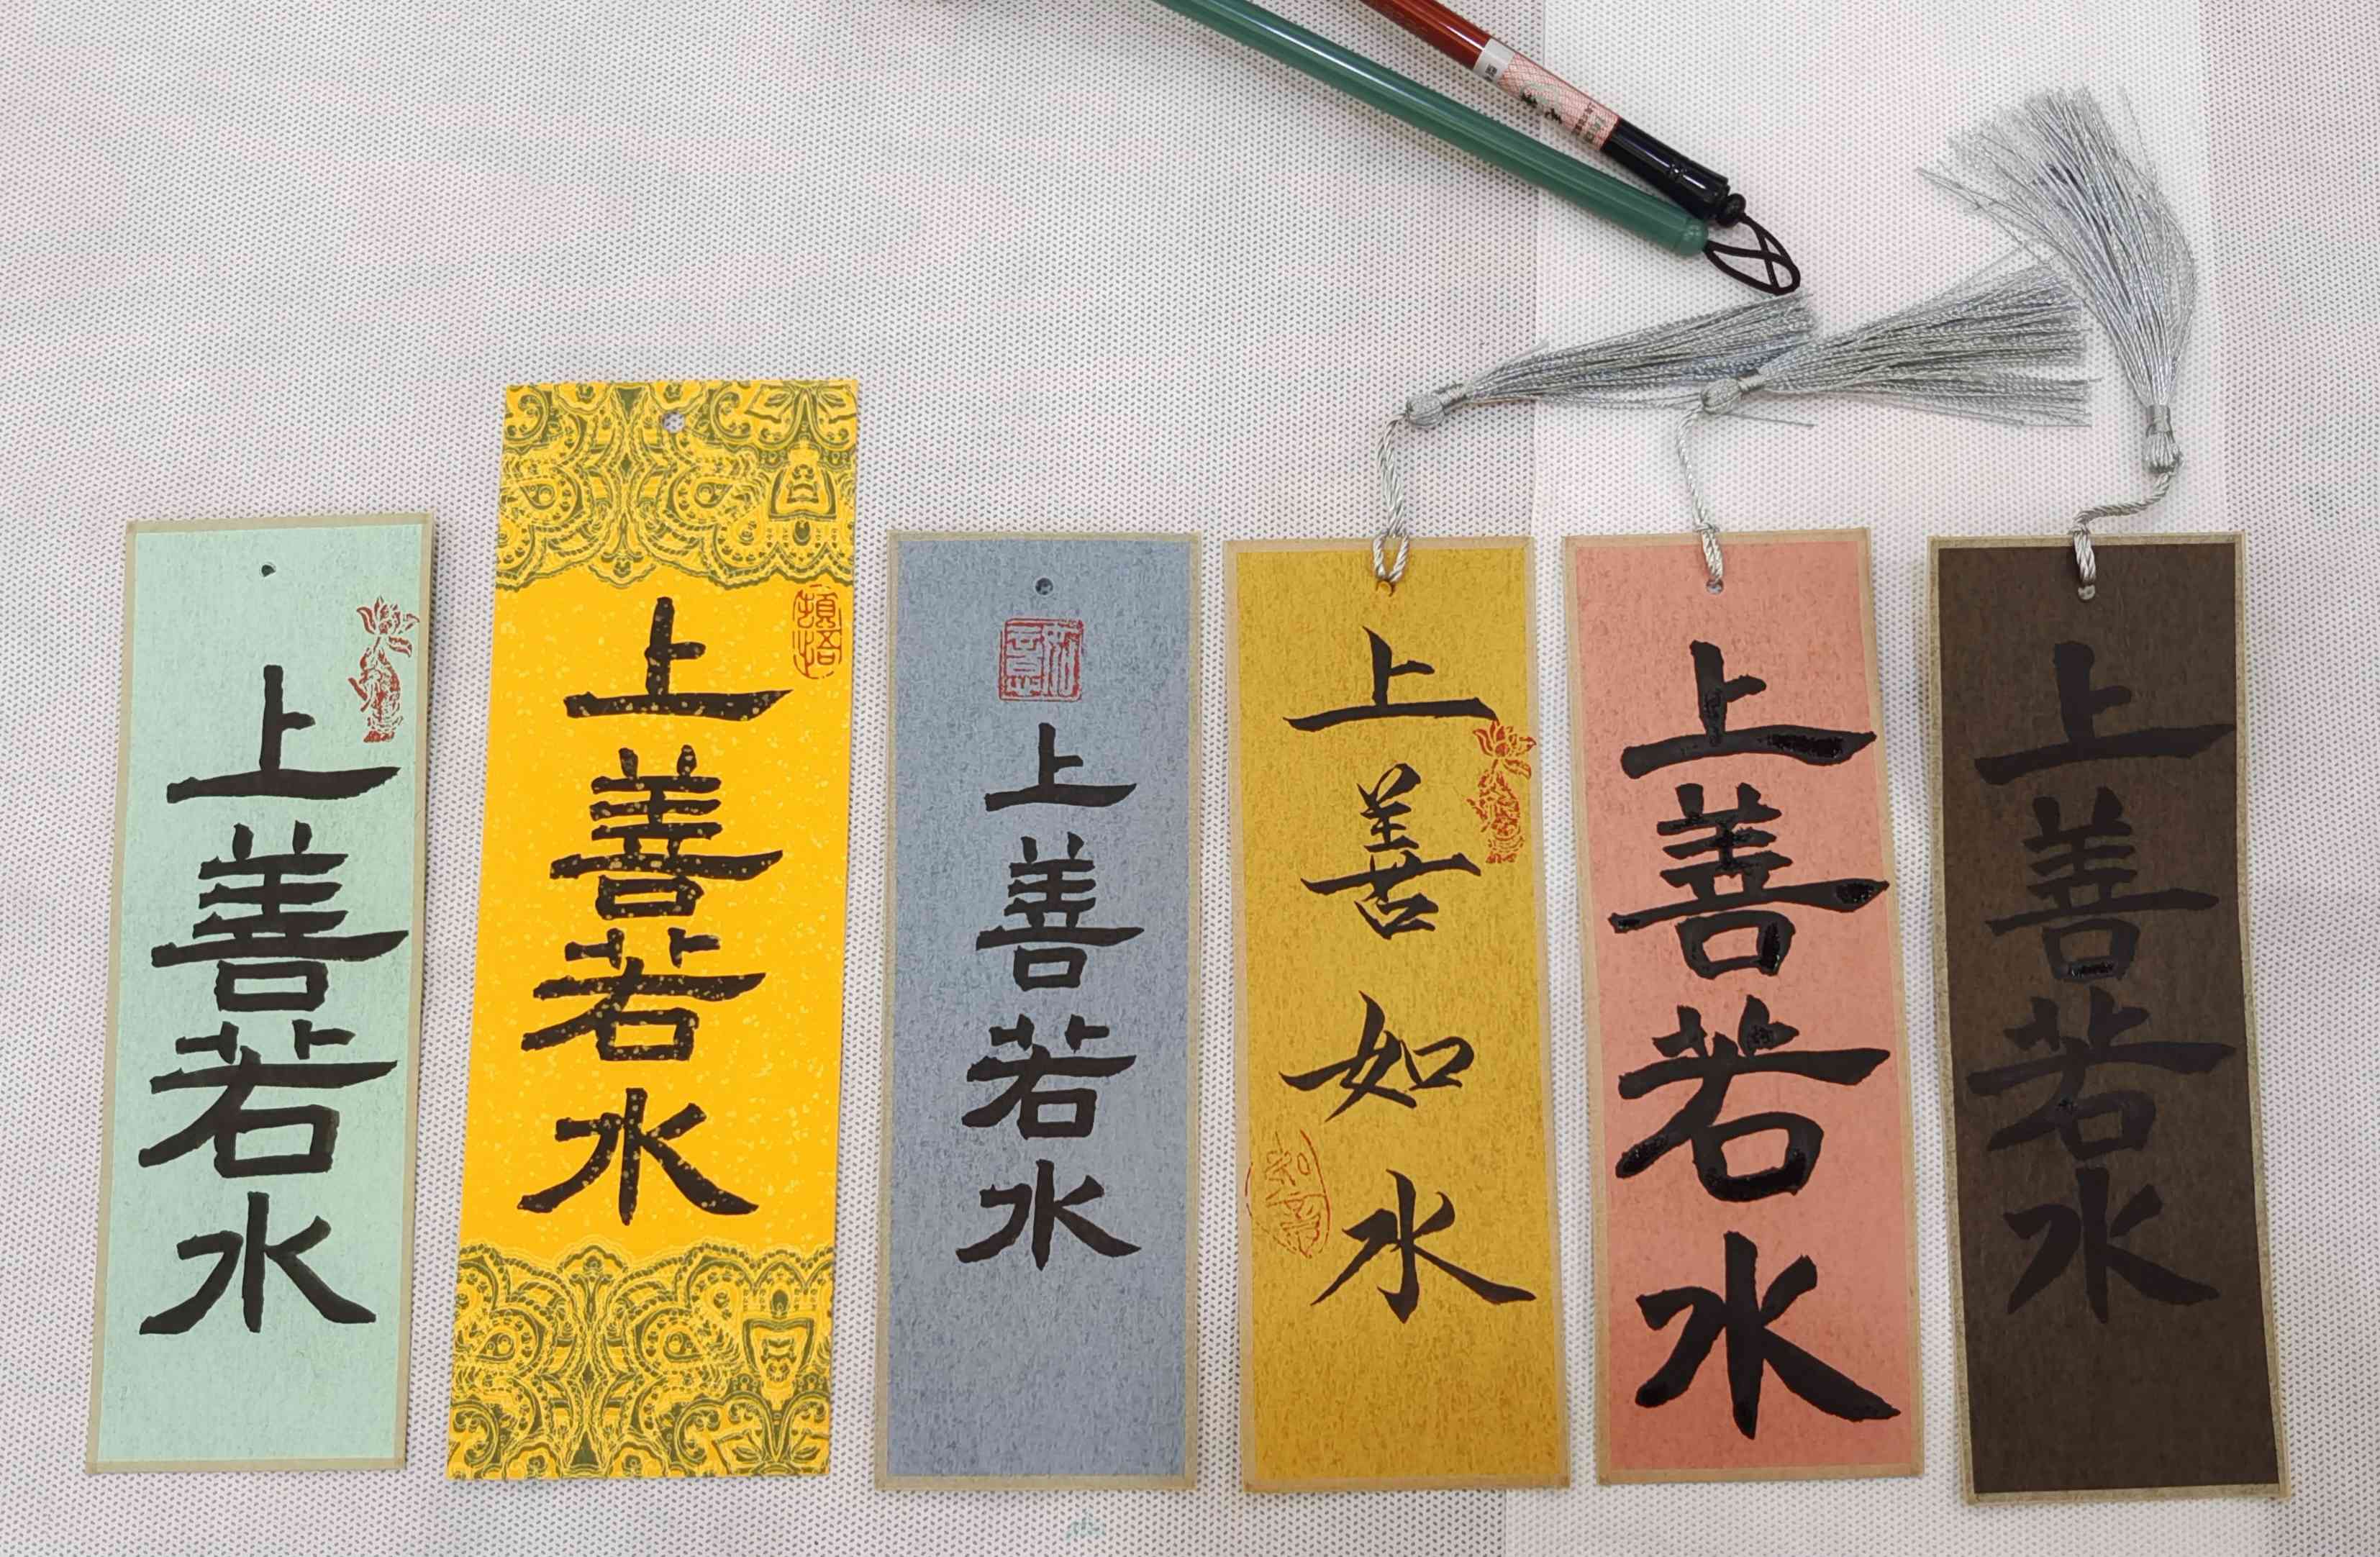 上善若水
頓悟
上善若水
上善若水
上善如水
上善若水
上善若水